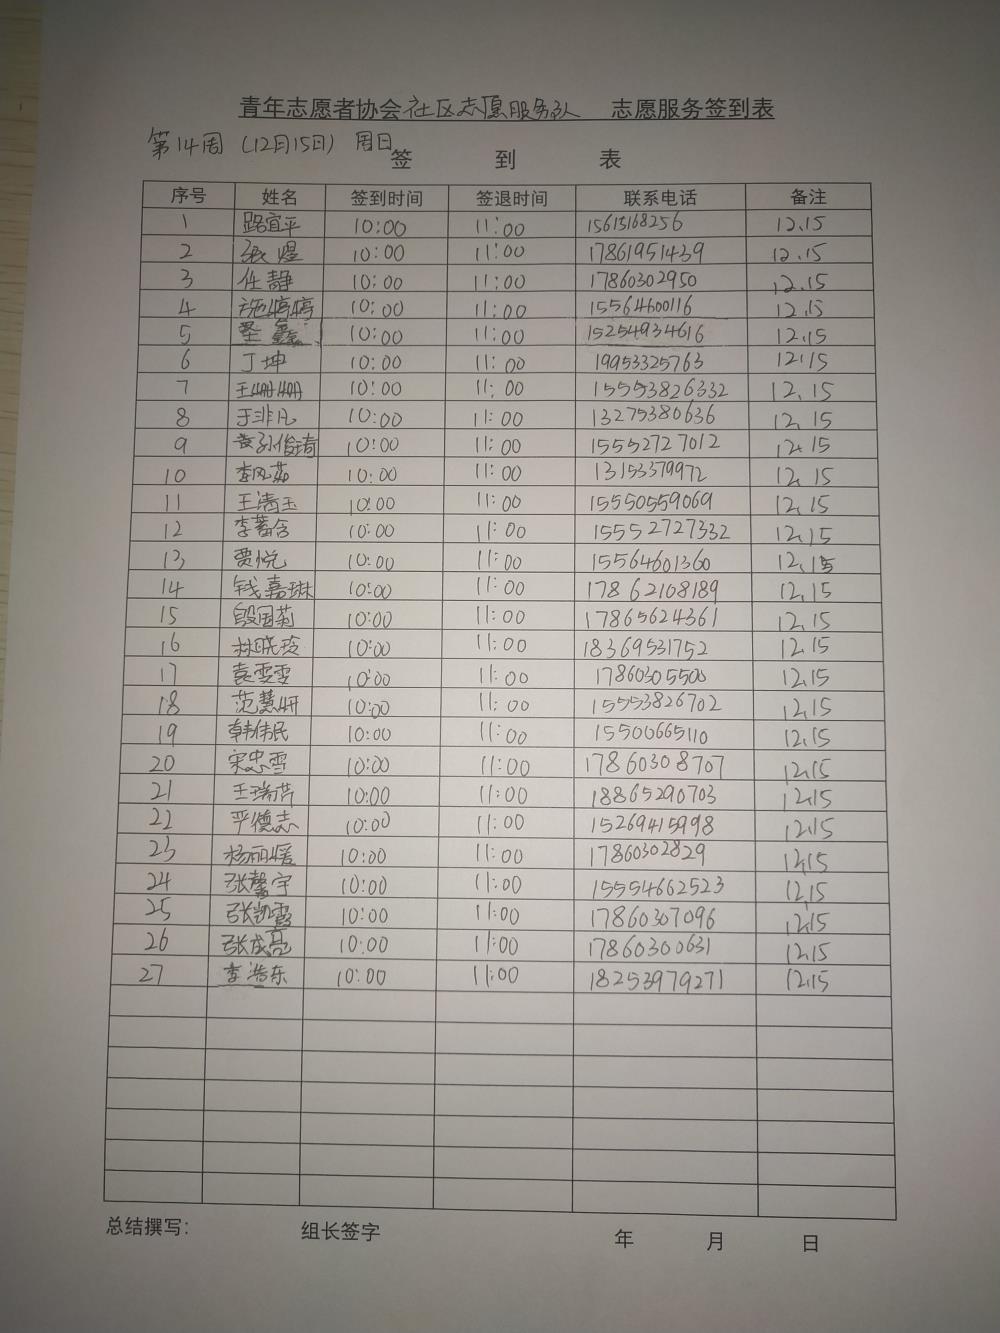 青年志愿者协会社区志愿服务队 志愿服务签到表
第14周 (12月15日) 周日
签 到 表
序号 姓名 签到时间 签退时间 联系电话 备注
1 路宜平 10:00 11:00 15615168256 12.15
2 张煜 10:00 11:00 17861951439 12.15
3 任静 10:00 11:00 17860302950 12.15
4 施婷婷 10:00 11:00 15564600116 12.15
5 鑫 10:00 11:00 15254934616 12.15
6 丁坤 10:00 11:00 19953325763 12.15
7 王姗姗 10:00 11:00 15553826332 12.15
8 于非凡 10:00 11:00 13275380636 12.15
9 黄孙俊琦 10:00 11:00 15552727012 12.15
10 李风茹 10:00 11:00 13153379972 12.15
11 王清玉 10:00 11:00 15550559069 12.15
12 李蓄含 10:00 11:00 15552727332 12.15
13 贾悦 10:00 11:00 15564601360 12.15
14 钱嘉琳 10:00 11:00 17862108189 12.15
15 段国莉 10:00 11:00 17865624361 12.15
16 林晓玲 10:00 11:00 18369531752 12.15
17 袁雯雯 10:00 11:00 17860305500 12.15
18 范慧妍 10:00 11:00 15553826702 12.15
19 韩伟民 10:00 11:00 15500665110 12.15
20 宋忠雪 10:00 11:00 17860308707 12.15
21 王瑞芹 10:00 11:00 18865290703 12.15
22 平德志 10:00 11:00 15269415998 12.15
23 杨丽媛 10:00 11:00 17860302829 12.15
24 张馨宇 10:00 11:00 15554662523 12.15
25 张凯霞 10:00 11:00 17860307096 12.15
26 张成亮 10:00 11:00 17860300631 12.15
27 李浩东 10:00 11:00 18253979271 12.15
总结撰写： 组长签字 年 月 日